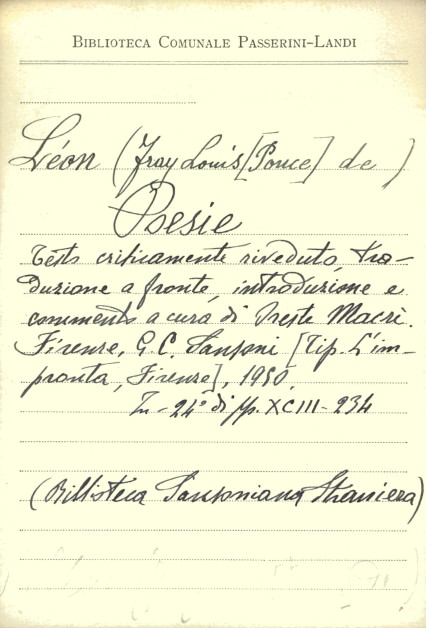 BIBLIOTECA COMUNALE PASSERINI-LANDI
Léon (Fray Louis [Ponce] de )
Poesie
Testo criticamente riveduto, tra-
duzione a fronte, introduzione e
commento a cura di Oreste Macrì.
Firenze, G. C. Sansoni [Tip. L'im-
pronta, Firenze], 1950.
In-24° di pp. XCIII-234
(Biblioteca Sansoniana Straniera)